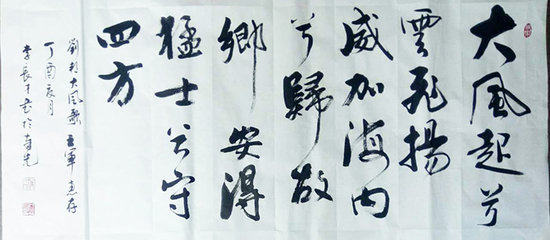 大風起兮
雲飛揚
威加海内
兮歸故
鄉安得
猛士兮守
四方
劉邦大風歌 軍惠存
丁酉辰月
李長書於